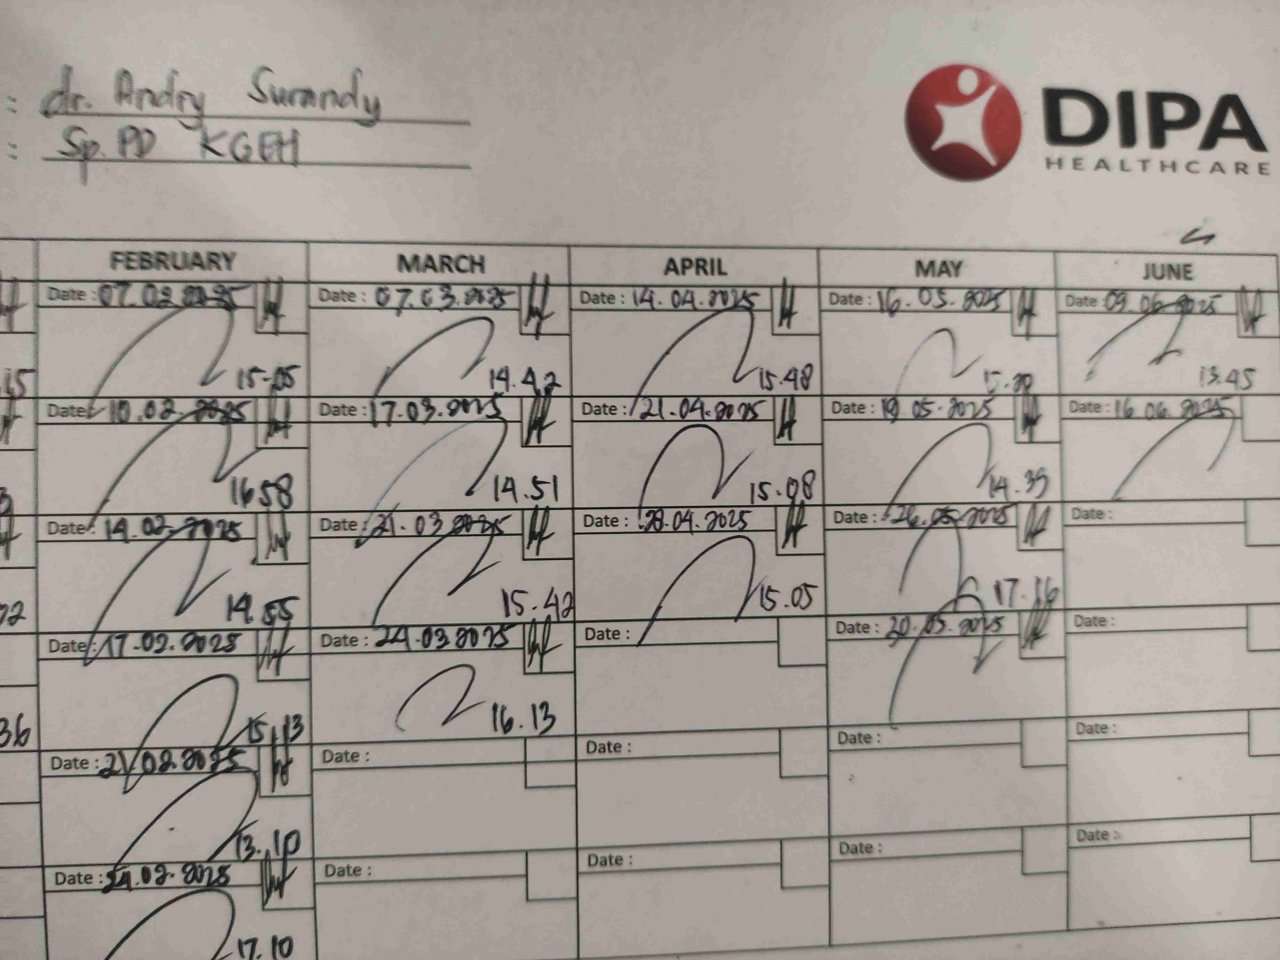 : dr. Andry Surandy
: Sp. PD KGEH
DIPA
HEALTHCARE
FEBRUARY MARCH APRIL MAY JUNE
Date : 07.02.2025 Date : 07.03.2025 Date : 14.04.2025 Date : 16.05.2025 Date : 09.06.2025
15.05 14.42 15.48 13.45
Date : 10.02.2025 Date : 17.03.2025 Date : 21.04.2025 Date : 19.05.2025 Date : 16.06.2025
16.58 14.51 15.08 14.39
Date : 14.02.2025 Date : 21.03.2025 Date : 28.04.2025 Date : 26.05.2025 Date :
14.55 15.42 15.05 17.16
Date : 17.02.2025 Date : 24.03.2025 Date : Date : Date :
36 15.13 16.13
Date : 21.02.2025 Date : Date : Date : Date :
13.10
Date : 24.02.2025 Date : Date : Date : Date :
17.10